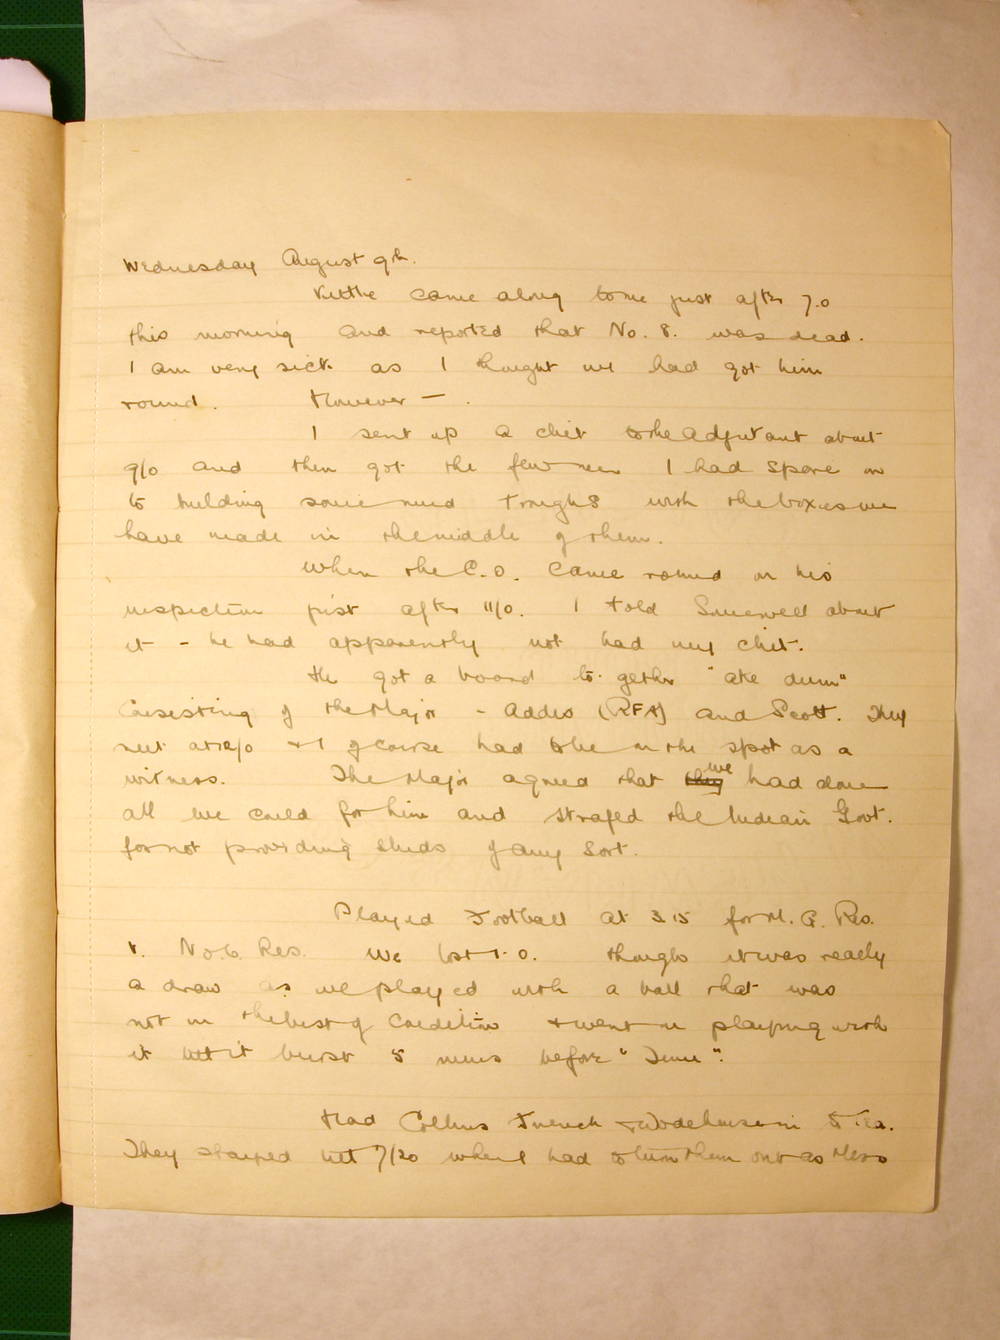 Wednesday August 9th.
came along to me just after 7.0
this morning and reported that No. 8. was dead.
I am very sick as I thought we had got him
round. However — .
I sent up a chit to the Adjutant about
9/0 and then got the few men I had spare on
to building some mud troughs with the boxes we
have made in the middle of them.
When the C.O. came round on his
inspection just after 11/0. I told about
it - he had apparently not had my chit.
He got a board together "
Consisting of the Major - Addis (RFA) and Scott. They
met at & I of course had to be on the spot as a
witness. The Major agreed that they we had done
all we could for him and strafed the Indian Govt.
for not providing sheds of any sort.
Played Football at 3.15 for M. G. Res.
v. No. 6. Res. We lost 1-0. though it was really
a draw as we played with a ball that was
not in the best of condition & went on playing with
it till it burst 5 mins before "Time".
Had Collins French & Wodehouse in to Tea.
They stayed till 7/20 when I had to turn them out as Mess